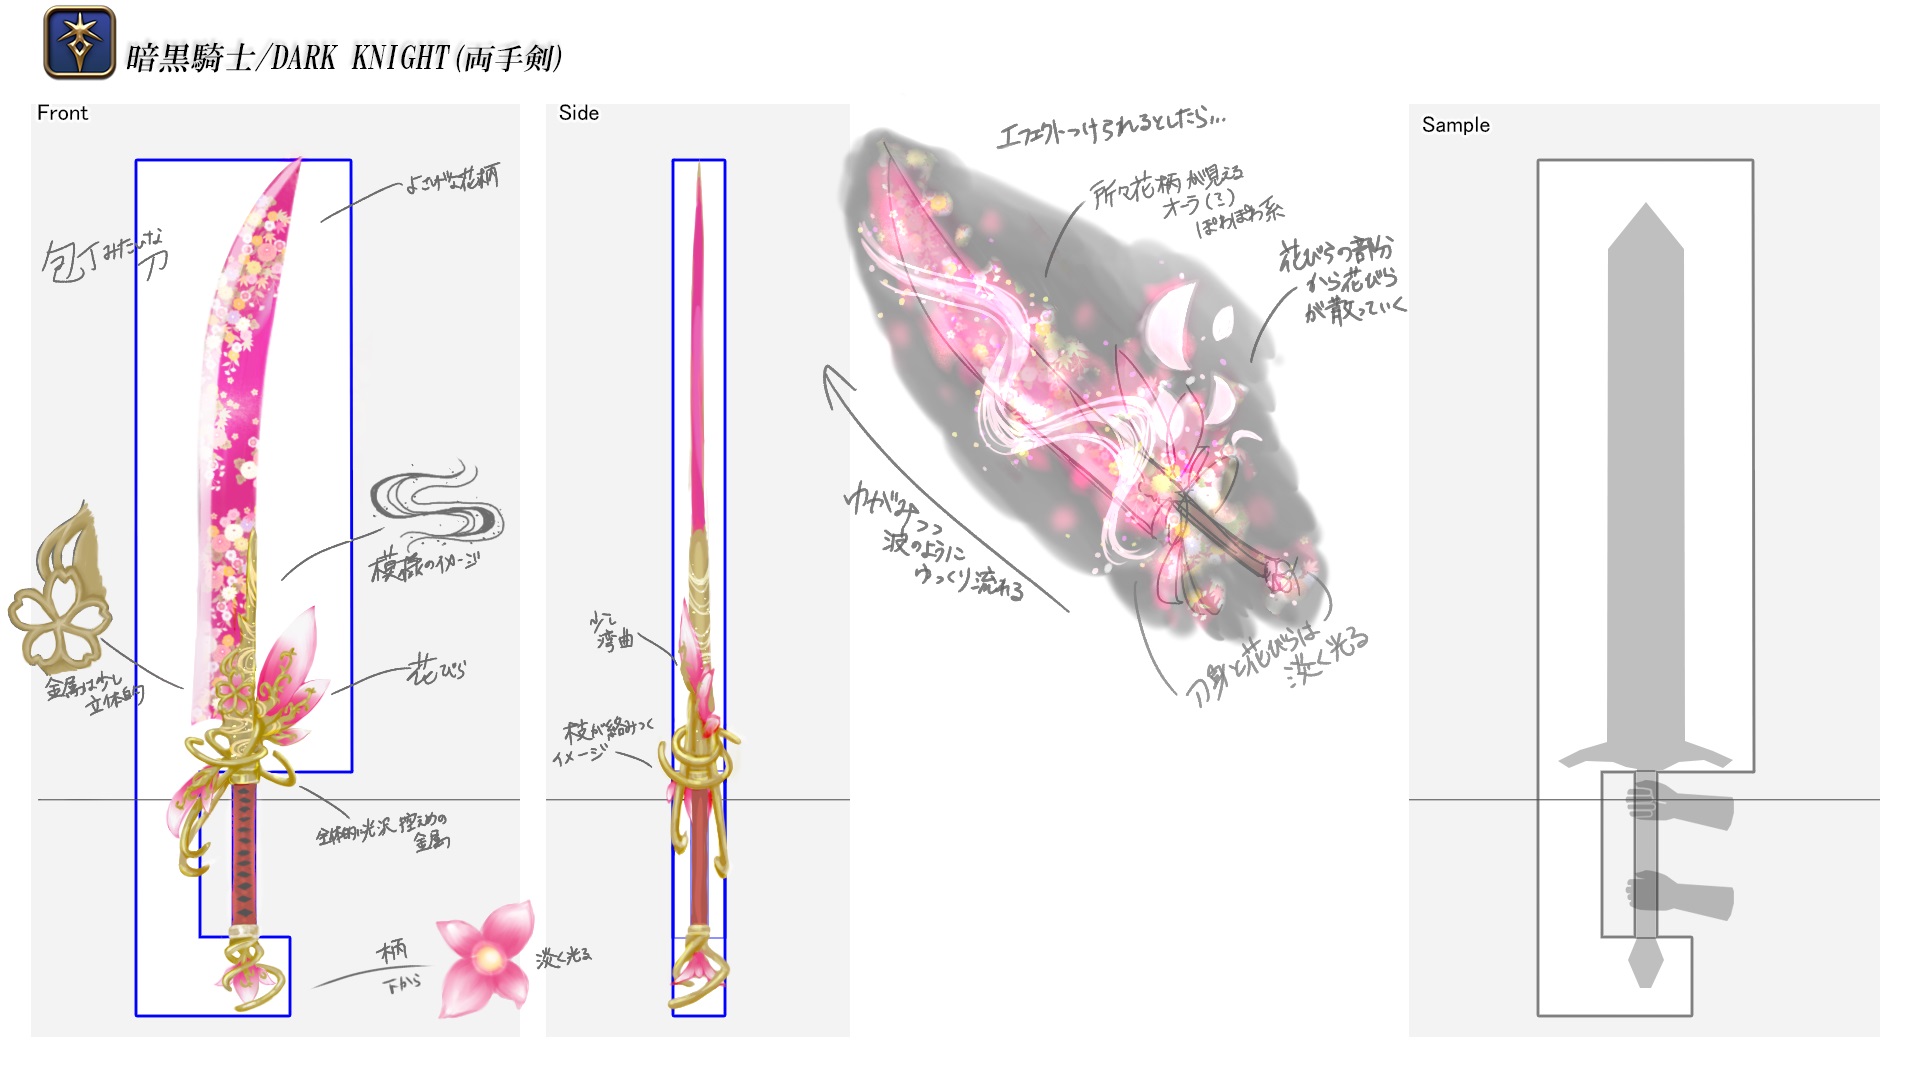 暗黒騎士/DARK KNIGHT(両手剣)
Front
よさげな花柄
包丁みたいな
刀
模様のイメージ
金属は少し
立体的
花びら
全体的に光沢控えめの
金属
柄
下から
淡く光る
Side
少し
湾曲
枝が絡みつく
イメージ
エフェクトつけられるとしたら...
所々花柄が見える
オーラ(ミ)
ぽわぽわ系
花びらの部分
から花びら
が散っていく
ゆがみつつ
波のように
ゆっくり流れる
刀身と花びらは
淡く光る
Sample